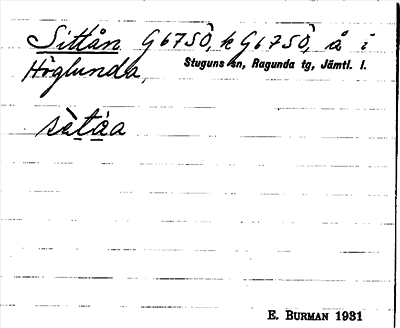 Sittån G67SÖ, k G67SÖ, å i
Höglunda, Stuguns sn, Ragunda tg, Jämtl. l.
sèta̲a
E. BURMAN 1931